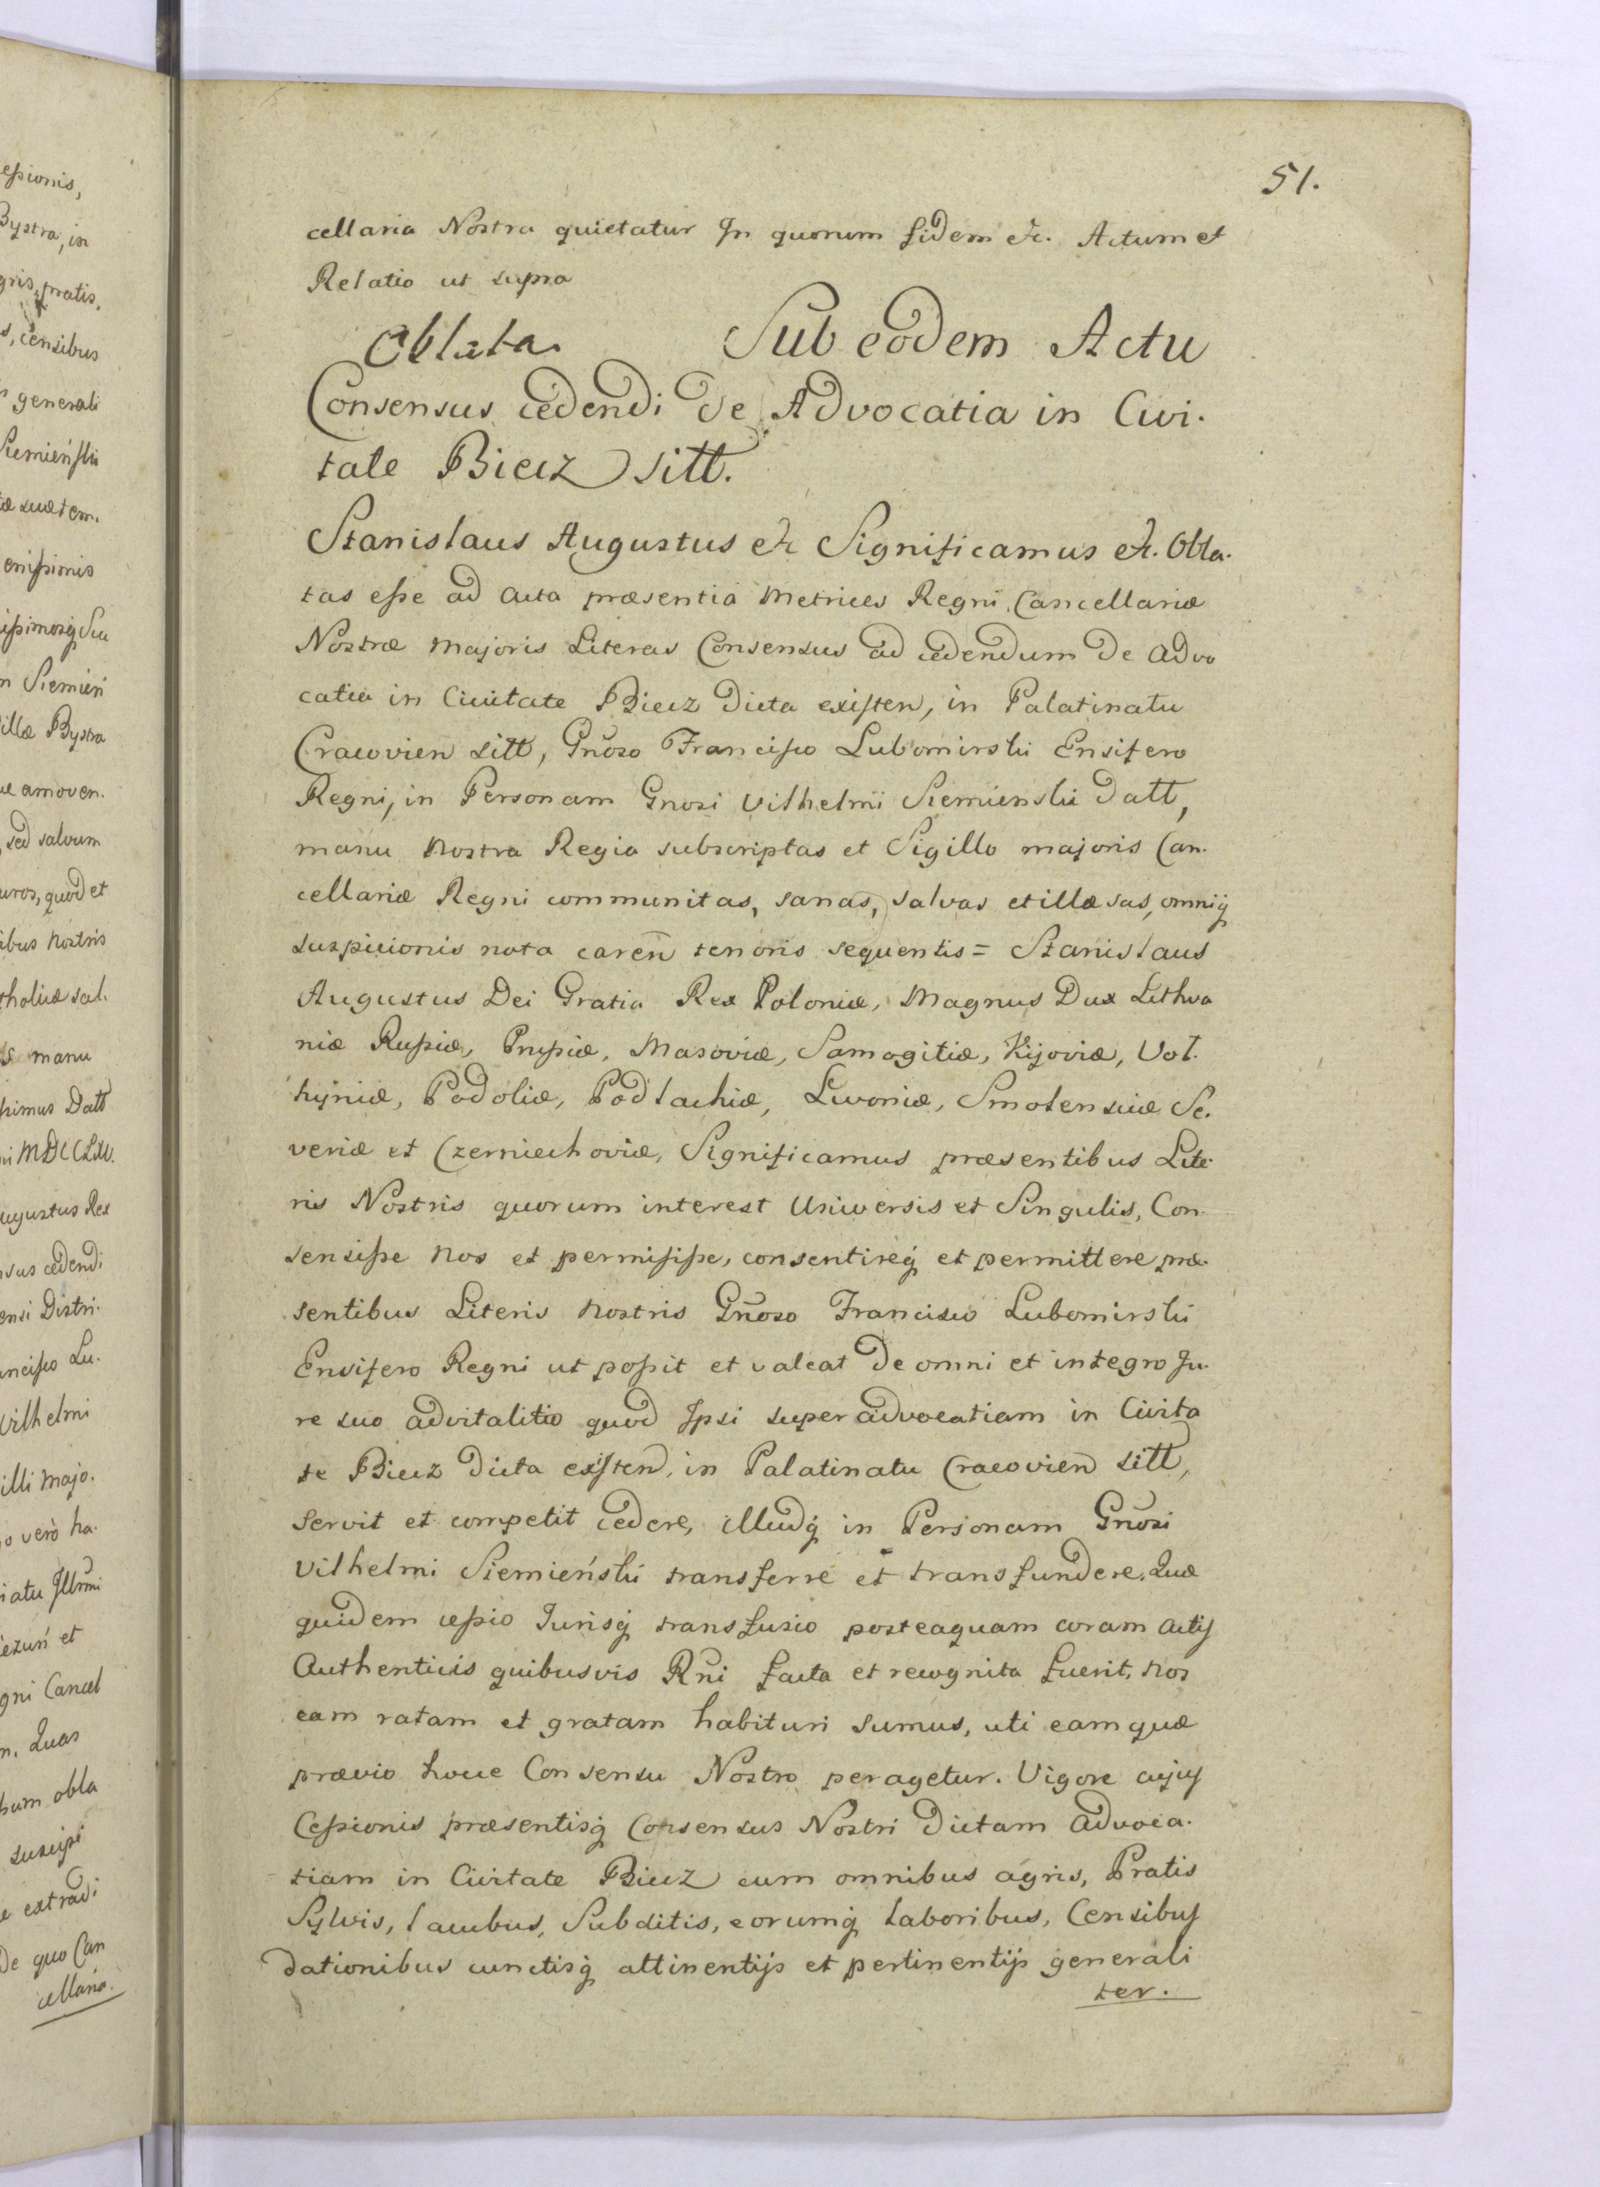 eſsionis,
Bystra, in
gris, pratis,
s, censibus
generali
Siemieńſki
tæ suæ tem.
eniſsionis
iſsimosq́ Su
m Siemień
illæ Bystra
ue amoven.
sed salvum
uros, quod et
ibus Nostris
tholicæ sal.
s manu
ſsimus Datt
ni MDCCLXV.
Augustus Rex
nsus cedendi
ensi Distri.
anciſco Lu.
Vilhelmi
illi Majo.
o verò ha.
iatu Jllrmi
et
gni Cancel
n. Quas
hum obla
suscipi
e extradi
De quo Can
cellaria.
51.
cellaria Nostra quietatur Jn quorum fidem etc. Actum et
Relatio ut supra
Oblata. Sub eodem Actu
Consensus cedendi de Advocatia in Civi.
tate Biecz sitt.
Stanislaus Augustus etc Significamus etc. Obla.
tas eſse ad Acta præsentia Metrices Regni Cancellariæ
Nostræ Majoris Literas Consensus ad cedendum de Advo
catia in Civitate Biecz Dicta exiſten, in Palatinatu
Cracovien sitt, Gnõso Franciſco Lubomirski Ensifero
Regni, in Personam Gnosi Vilhelmi Siemienski Datt,
manu Nostra Regia subscriptas et Sigillo majoris Can.
cellariæ Regni communitas, sanas, salvas et illæsas, omniq́
suspicionis nota careñ tenoris sequentis = Stanislaus
Augustus Dei Gratia Rex Poloniæ, Magnus Dux Lithva
niæ Ruſsiæ, Pruſsiæ, Masoviæ, Samogitiæ, Kijoviæ, Vol.
hyniæ, Podoliæ, Podlachiæ, Livoniæ, Smolensciæ Se.
veriæ et Czerniechoviæ, Significamus præsentibus Lite.
ris Nostris quorum interest Universis et Singulis, Con.
sensiſse Nos et permiſiſse, consentireq́ et permittere præ.
sentibus Literis Nostris Gnõso Francisco Lubomirski
Ensifero Regni ut poſsit et valeat de omni et integro Ju.
re suo advitalitio quod Jpsi super advocatiam in Civita
te Biecz dicta exiſten, in Palatinatu Cracovien sitt,
servit et competit cedere, illudq́ in Personam Gnõsi
Vilhelmi Siemieński transferre et transfundere. Quæ
quidem ceſsio Jurisq́ transfusio posteaquam coram Actis
Authenticis quibusvis Rñi facta et recognita fuerit, Nos
eam ratam et gratam habituri sumus, uti eam quæ
prævio hocce Consensu Nostro peragetur. Vigore cujus
Ceſsionis præsentisq́ Consensus Nostri Dictam Advoca.
tiam in Civitate Biecz cum omnibus agris, Pratis
Sylvis, lacubus, Subditis, eorumq́ laboribus, Censibus
dationibus cunctisq́ attinentijs et pertinentijs generali
ter.